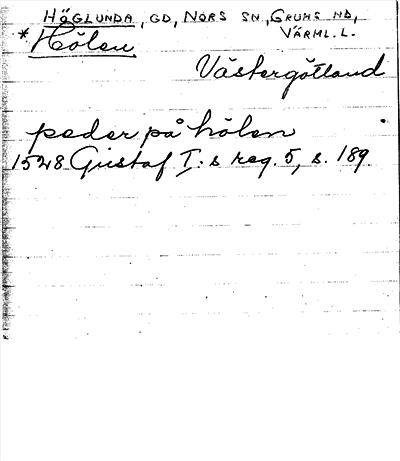 HÖGLUNDA, GD, NORS SN, GRUMS HD,
VÄRML. L.
* Hölen
Västergötland
peder på hölen
1528 Gustaf I:s reg. 5, s. 189